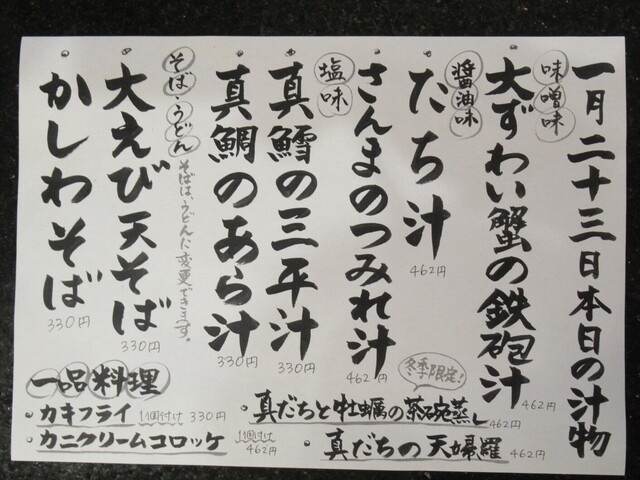 一月二十三日本日の汁物
味噌味
大ずわい蟹の鉄砲汁
462円
醤油味
たち汁
462円
さんまのつみれ汁
462円
塩味
真鱈の三平汁
330円
真鯛のあら汁
330円
そば・うどん
そばは、うどんに変更できます。
大えび天そば
330円
かしわそば
330円
一品料理
・カキフライ 1個付け 330円
・カニクリームコロッケ 1個付け 462円
冬季限定!
・真だちと牡蠣の茶碗蒸し 462円
・真だちの天婦羅 462円